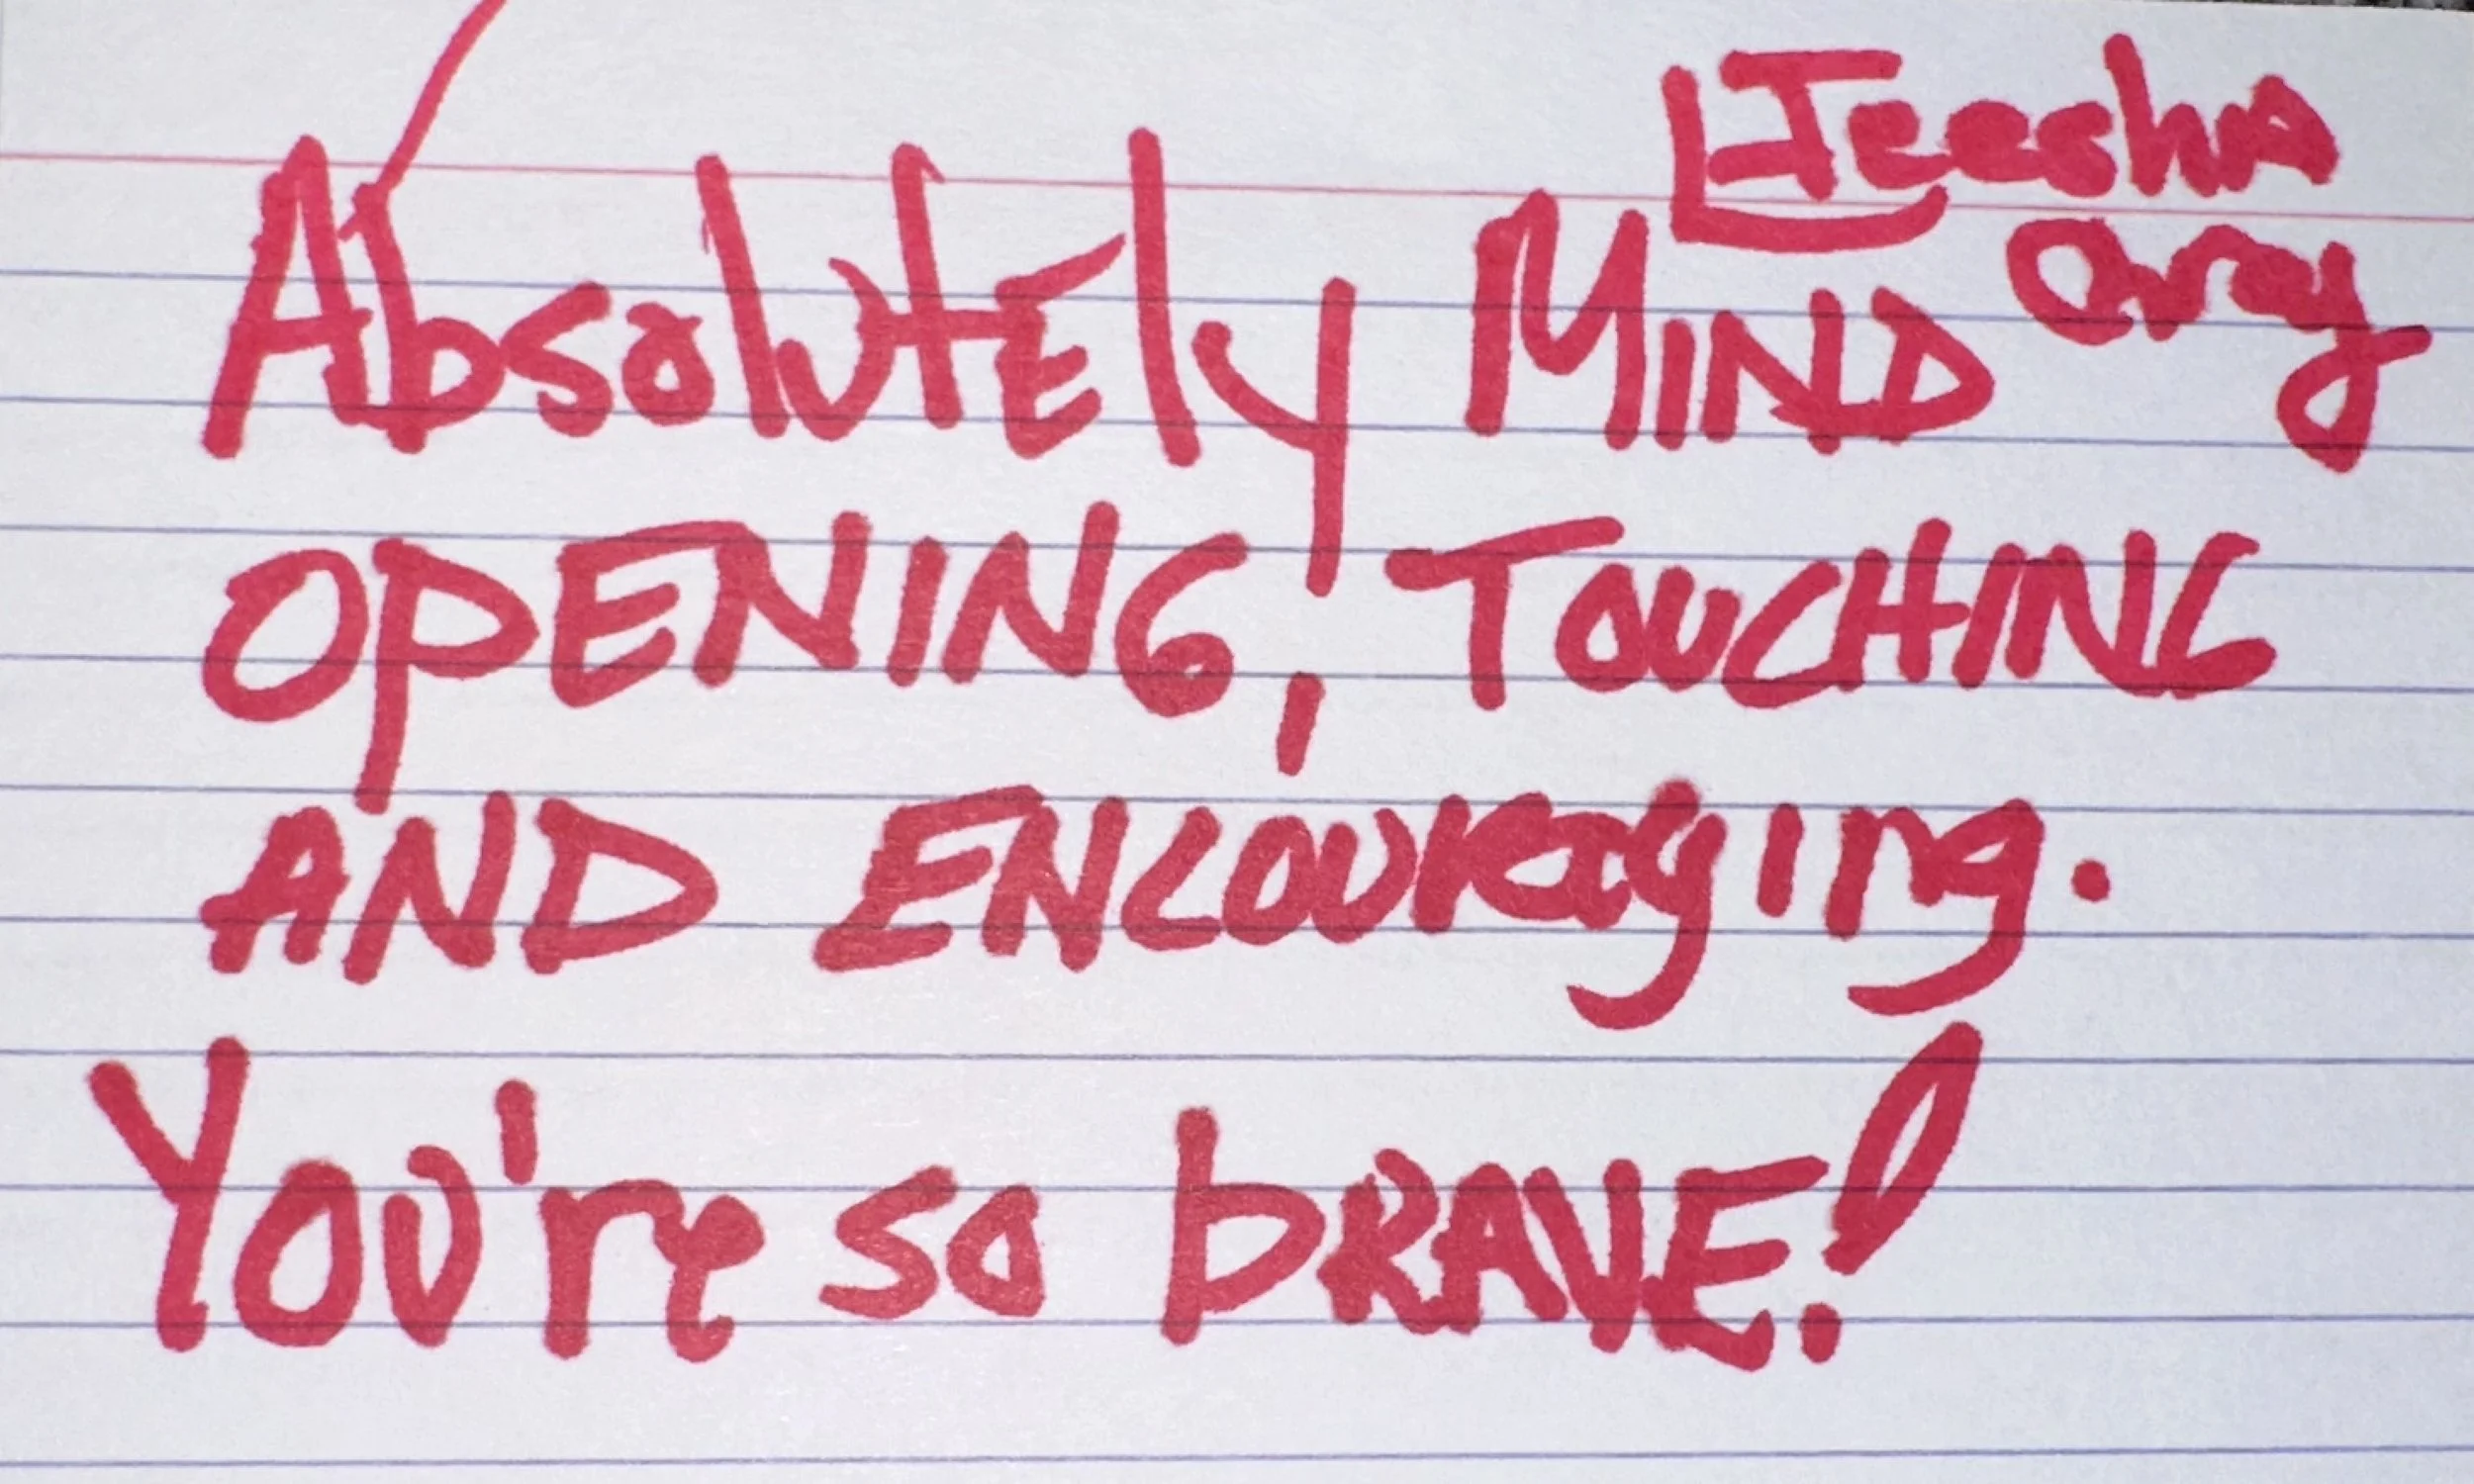 Absolutely MIND
OPENING, TOUCHING
AND ENCOURaging.
You're so bRAVE!